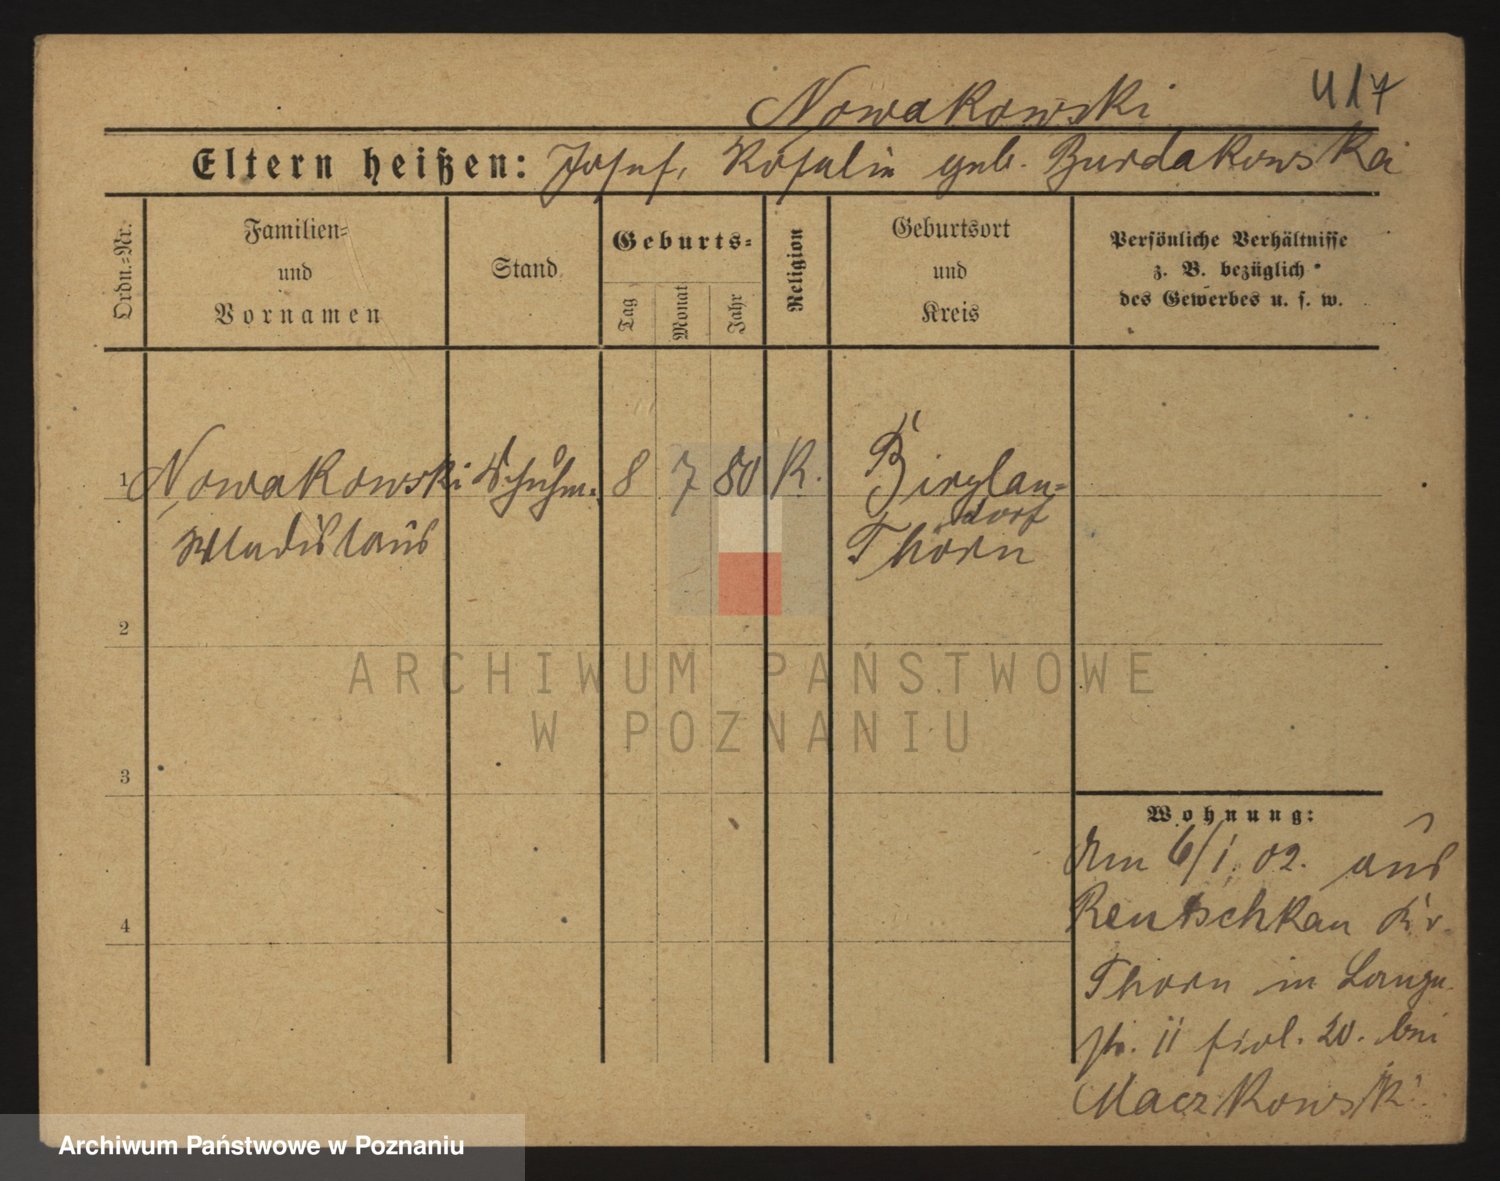 Nowakowski
417
Eltern heißen: Josef, Rosalie geb. Burdakowska
Ordn.-Nr.
Familien-
und
Vornamen
Stand
Geburts-
Tag
Monat
Jahr
Religion
Geburtsort
und
Kreis
Persönliche Verhältnisse
z. B. bezüglich
des Gewerbes u. s. w.
1 Nowakowski Schuhm. 8 7 80 K.
Wladislaus
Thorn
2
ARCHIWUM PAŃSTWOWE
W POZNANIU
3
Wohnung:
Am 6/1. 02. aus
Rentschkau Kr.
Thorn in Lange
str. 11 20. bei
Maczkowski
4
Archiwum Państwowe w Poznaniu